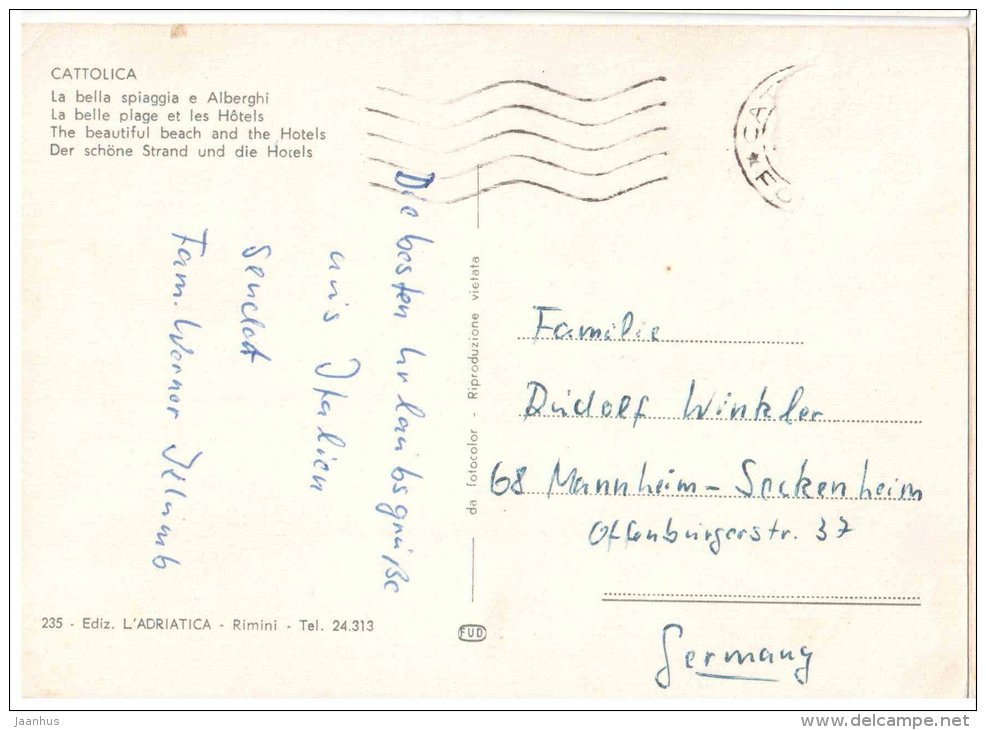 CATTOLICA
La bella spiaggia e Alberghi
La belle plage et les Hôtels
The beautiful beach and the Hotels
Der schöne Strand und die Hotels
Die besten Urlaubsgrüße
aus Italien
sendet
Fam. Werner
da fotocolor - Riproduzione vietata
Familie
Rudolf Winkler
68 Mannheim-Seckenheim
Offenburgerstr. 37
Germany
235 - Ediz. L'ADRIATICA - Rimini - Tel. 24.313
FUD
Jaanhus
www.delcampe.net